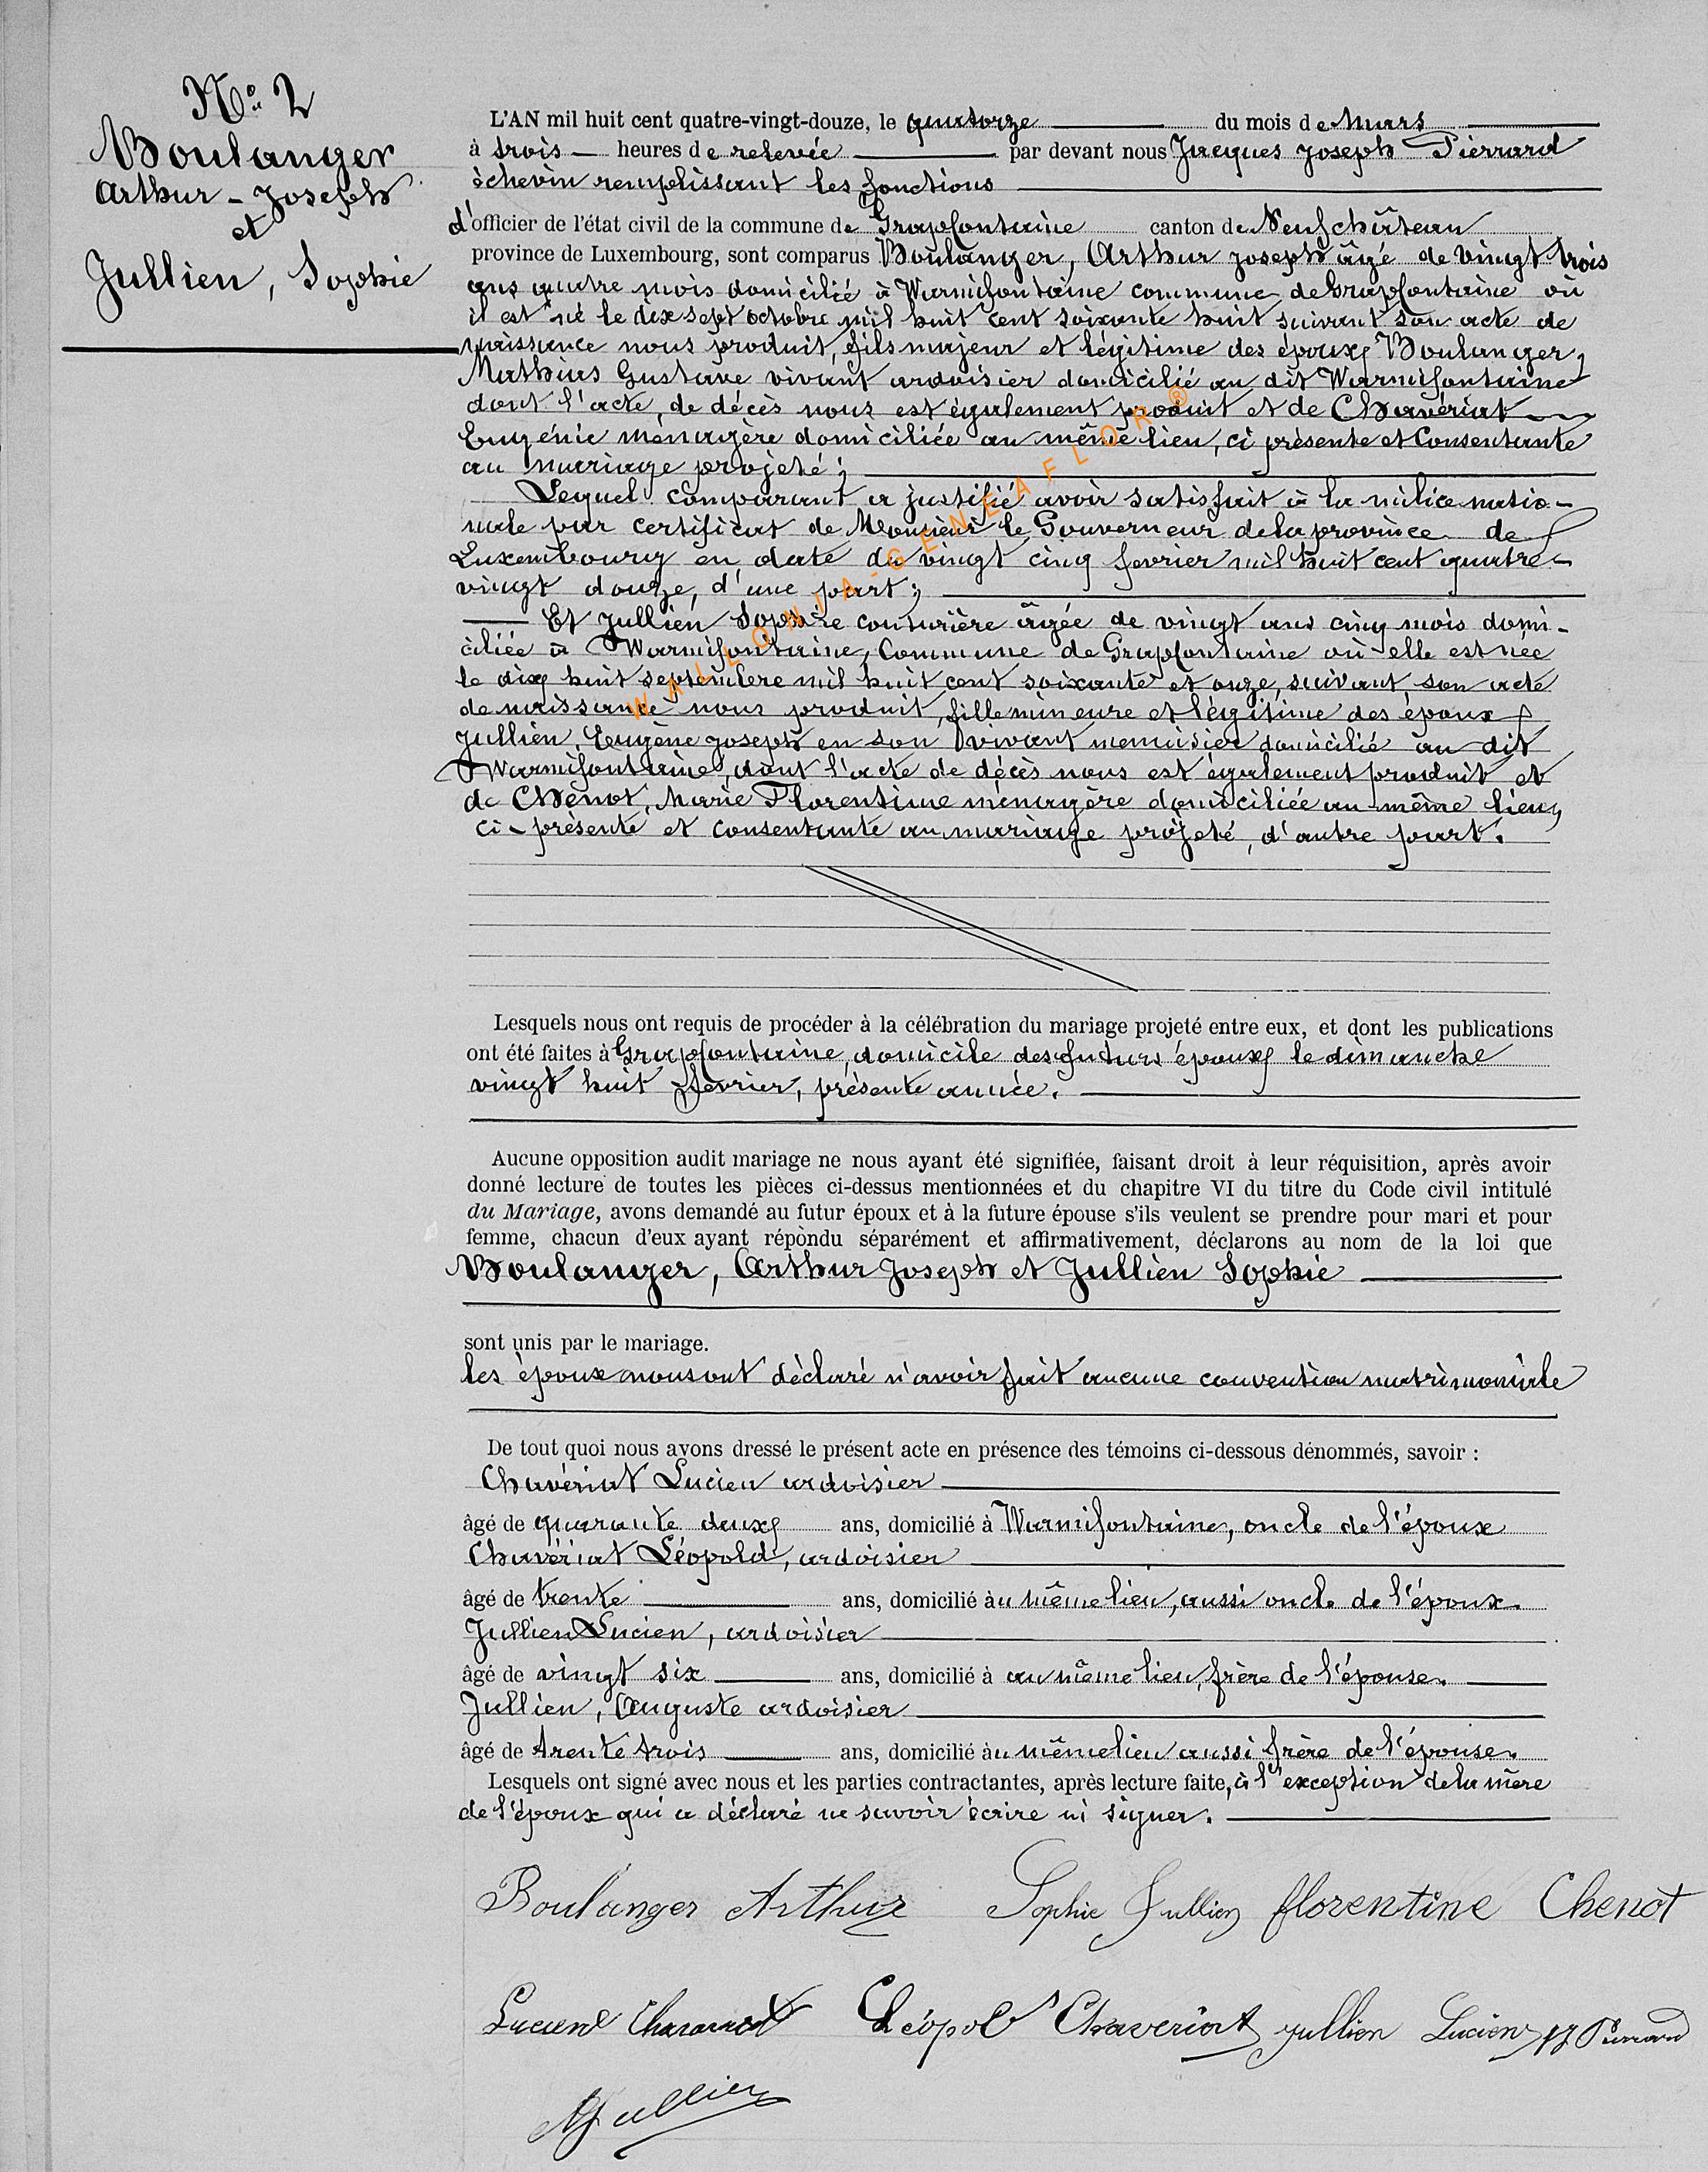 N° 2
Boulanger
Arthur - Joseph
et
Jullien, Sophie
L'AN mil huit cent quatre-vingt-douze, le quatorze du mois de Mars
à trois heures de relevée par devant nous Jacques Joseph Pierrard
échevin remplissant les fonctions
d'officier de l'état civil de la commune de Grapfontaine canton de Neufchâteau
province de Luxembourg, sont comparus Boulanger, Arthur Joseph âgé de vingt trois
ans quatre mois domicilié à Warmifontaine commune de Grapfontaine où
il est né le dix sept octobre mil huit cent soixante huit suivant son acte de
naissance nous produit, fils majeur et légitime des époux Boulanger,
Mathias Gustave vivant ardoisier domicilié au dit Warmifontaine
dont l'acte de décès nous est également produit et de Chavériat
Eugénie ménagère domiciliée au même lieu, ci présente et Consentante
au mariage projeté;
Lequel comparant a justifié avoir satisfait à la milice natio-
nale par certificat de Monsieur le Gouverneur de la province de
Luxembourg en date du vingt cinq fevrier mil huit cent quatre-
vingt douze, d'une part;
Et Jullien Sophie couturière âgée de vingt ans cinq mois domi-
ciliée à Warmifontaine, Commune de Grapfontaine où elle est née
le dix huit septembre mil huit cent soixante et onze, suivant son acte
de naissance nous produit, fille mineure et légitime des époux
Jullien, Eugène Joseph en son vivant menuisier domicilié au dit
Warmifontaine, dont l'acte de décès nous est également produit et
de Chenot, Marie Florentine ménagère domiciliée au même lieu,
ci-présente et consentante au mariage projeté, d'autre part.
WALLONIA-GENEAFLOR®
Lesquels nous ont requis de procéder à la célébration du mariage projeté entre eux, et dont les publications
ont été faites à Grapfontaine, domicile des futurs époux le dimanche
vingt huit fevrier, présente année.
Aucune opposition audit mariage ne nous ayant été signifiée, faisant droit à leur réquisition, après avoir
donné lecture de toutes les pièces ci-dessus mentionnées et du chapitre VI du titre du Code civil intitulé
du Mariage, avons demandé au futur époux et à la future épouse s'ils veulent se prendre pour mari et pour
femme, chacun d'eux ayant répondu séparément et affirmativement, déclarons au nom de la loi que
Boulanger, Arthur Joseph et Jullien Sophie
sont unis par le mariage.
les époux nous ont déclaré n'avoir fait aucune convention matrimoniale
De tout quoi nous avons dressé le présent acte en présence des témoins ci-dessous dénommés, savoir :
Chavériat Lucien ardoisier
âgé de quarante deux ans, domicilié à Warmifontaine, oncle de l'époux
Chavériat Léopold, ardoisier
âgé de trente ans, domicilié àu même lieu, aussi oncle de l'époux.
Jullien Lucien, ardoisier
âgé de vingt six ans, domicilié à au même lieu, frère de l'épouse.
Jullien, Auguste ardoisier
âgé de trente trois ans, domicilié àu même lieu aussi frère de l'épouse.
Lesquels ont signé avec nous et les parties contractantes, après lecture faite, à l'exception de la mère
de l'époux qui a déclaré ne savoir écrire ni signer.
Boulanger Arthur Sophie Jullien florentine Chenot
Lucien Chavariat Léopold Chaveriat Jullien Lucien JJ Pierrard
A Jullien